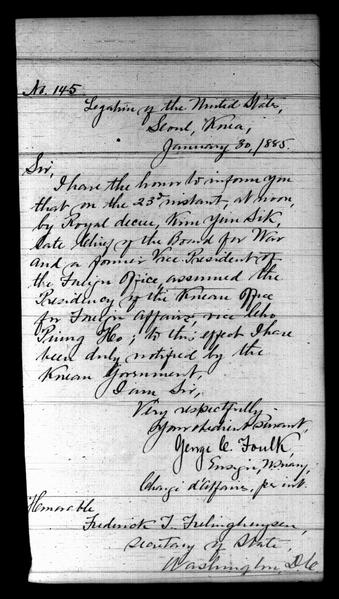 No. 145
Legation of the United States,
Seoul, Korea,
January 30, 1885.
Sir,
I have the honor to inform you
that on the 25th instant, at noon,
by Royal decree, Kim Yun Sik,
late Chief of the Board for War
and a former Vice President of
the Foreign Office, assumed the
Presidency of the Korean Office
for Foreign affairs, vice Cho
Piung Ho; to this effect I have
been duly notified by the
Korean Government.
I am Sir,
Very respectfully
Your obedient servant,
George C. Foulk,
Ensign, U.S. Navy,
Chargé d'affaires, per int.
Honorable
Frederick T. Frelinghuysen,
Secretary of State,
Washington, D.C.